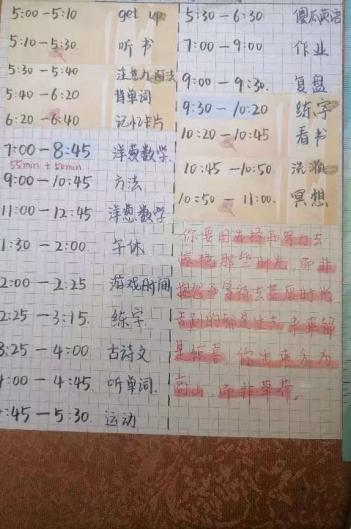 5:00-5:10 get up
5:10-5:30 听书
5:30-5:40
5:40-6:20 背单词
6:20-6:40 记忆卡片
7:00-8:45 洋葱数学
55min + 50min
9:00-10:45 方法
11:00-12:45 洋葱数学
1:30-2:00 午休
2:00-2:25 游戏时间
2:25-3:15. 练字
3:25-4:00 古诗文
4:00-4:45. 听单词.
:45-5:30. 运动
5:30-6:30 傻瓜英语
7:00-9:00 作业
9:00-9:30. 复盘
9:30-10:20 练字
10:20-10:45 看书
10:45-10:50. 洗漱
10:50-11:00. 冥想
你要用
那些时光,而非
未来
是惊喜 你生来
高山,而非草芥。